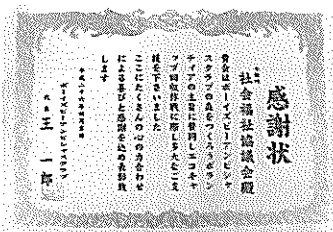 感謝状
社会福祉協議会殿
貴会はボーイズビーアンビシャ
スクラブの森をつくろうボラン
ティアの主旨に賛同しエコキャ
ップ回収作戦に際し多大なご支
援を下さいました
ここにたくさんの心の力合わせ
による喜びと感謝を込め表彰致
します
平成二十六年
ボーイズビーアンビシャスクラブ
代表 王 一郎